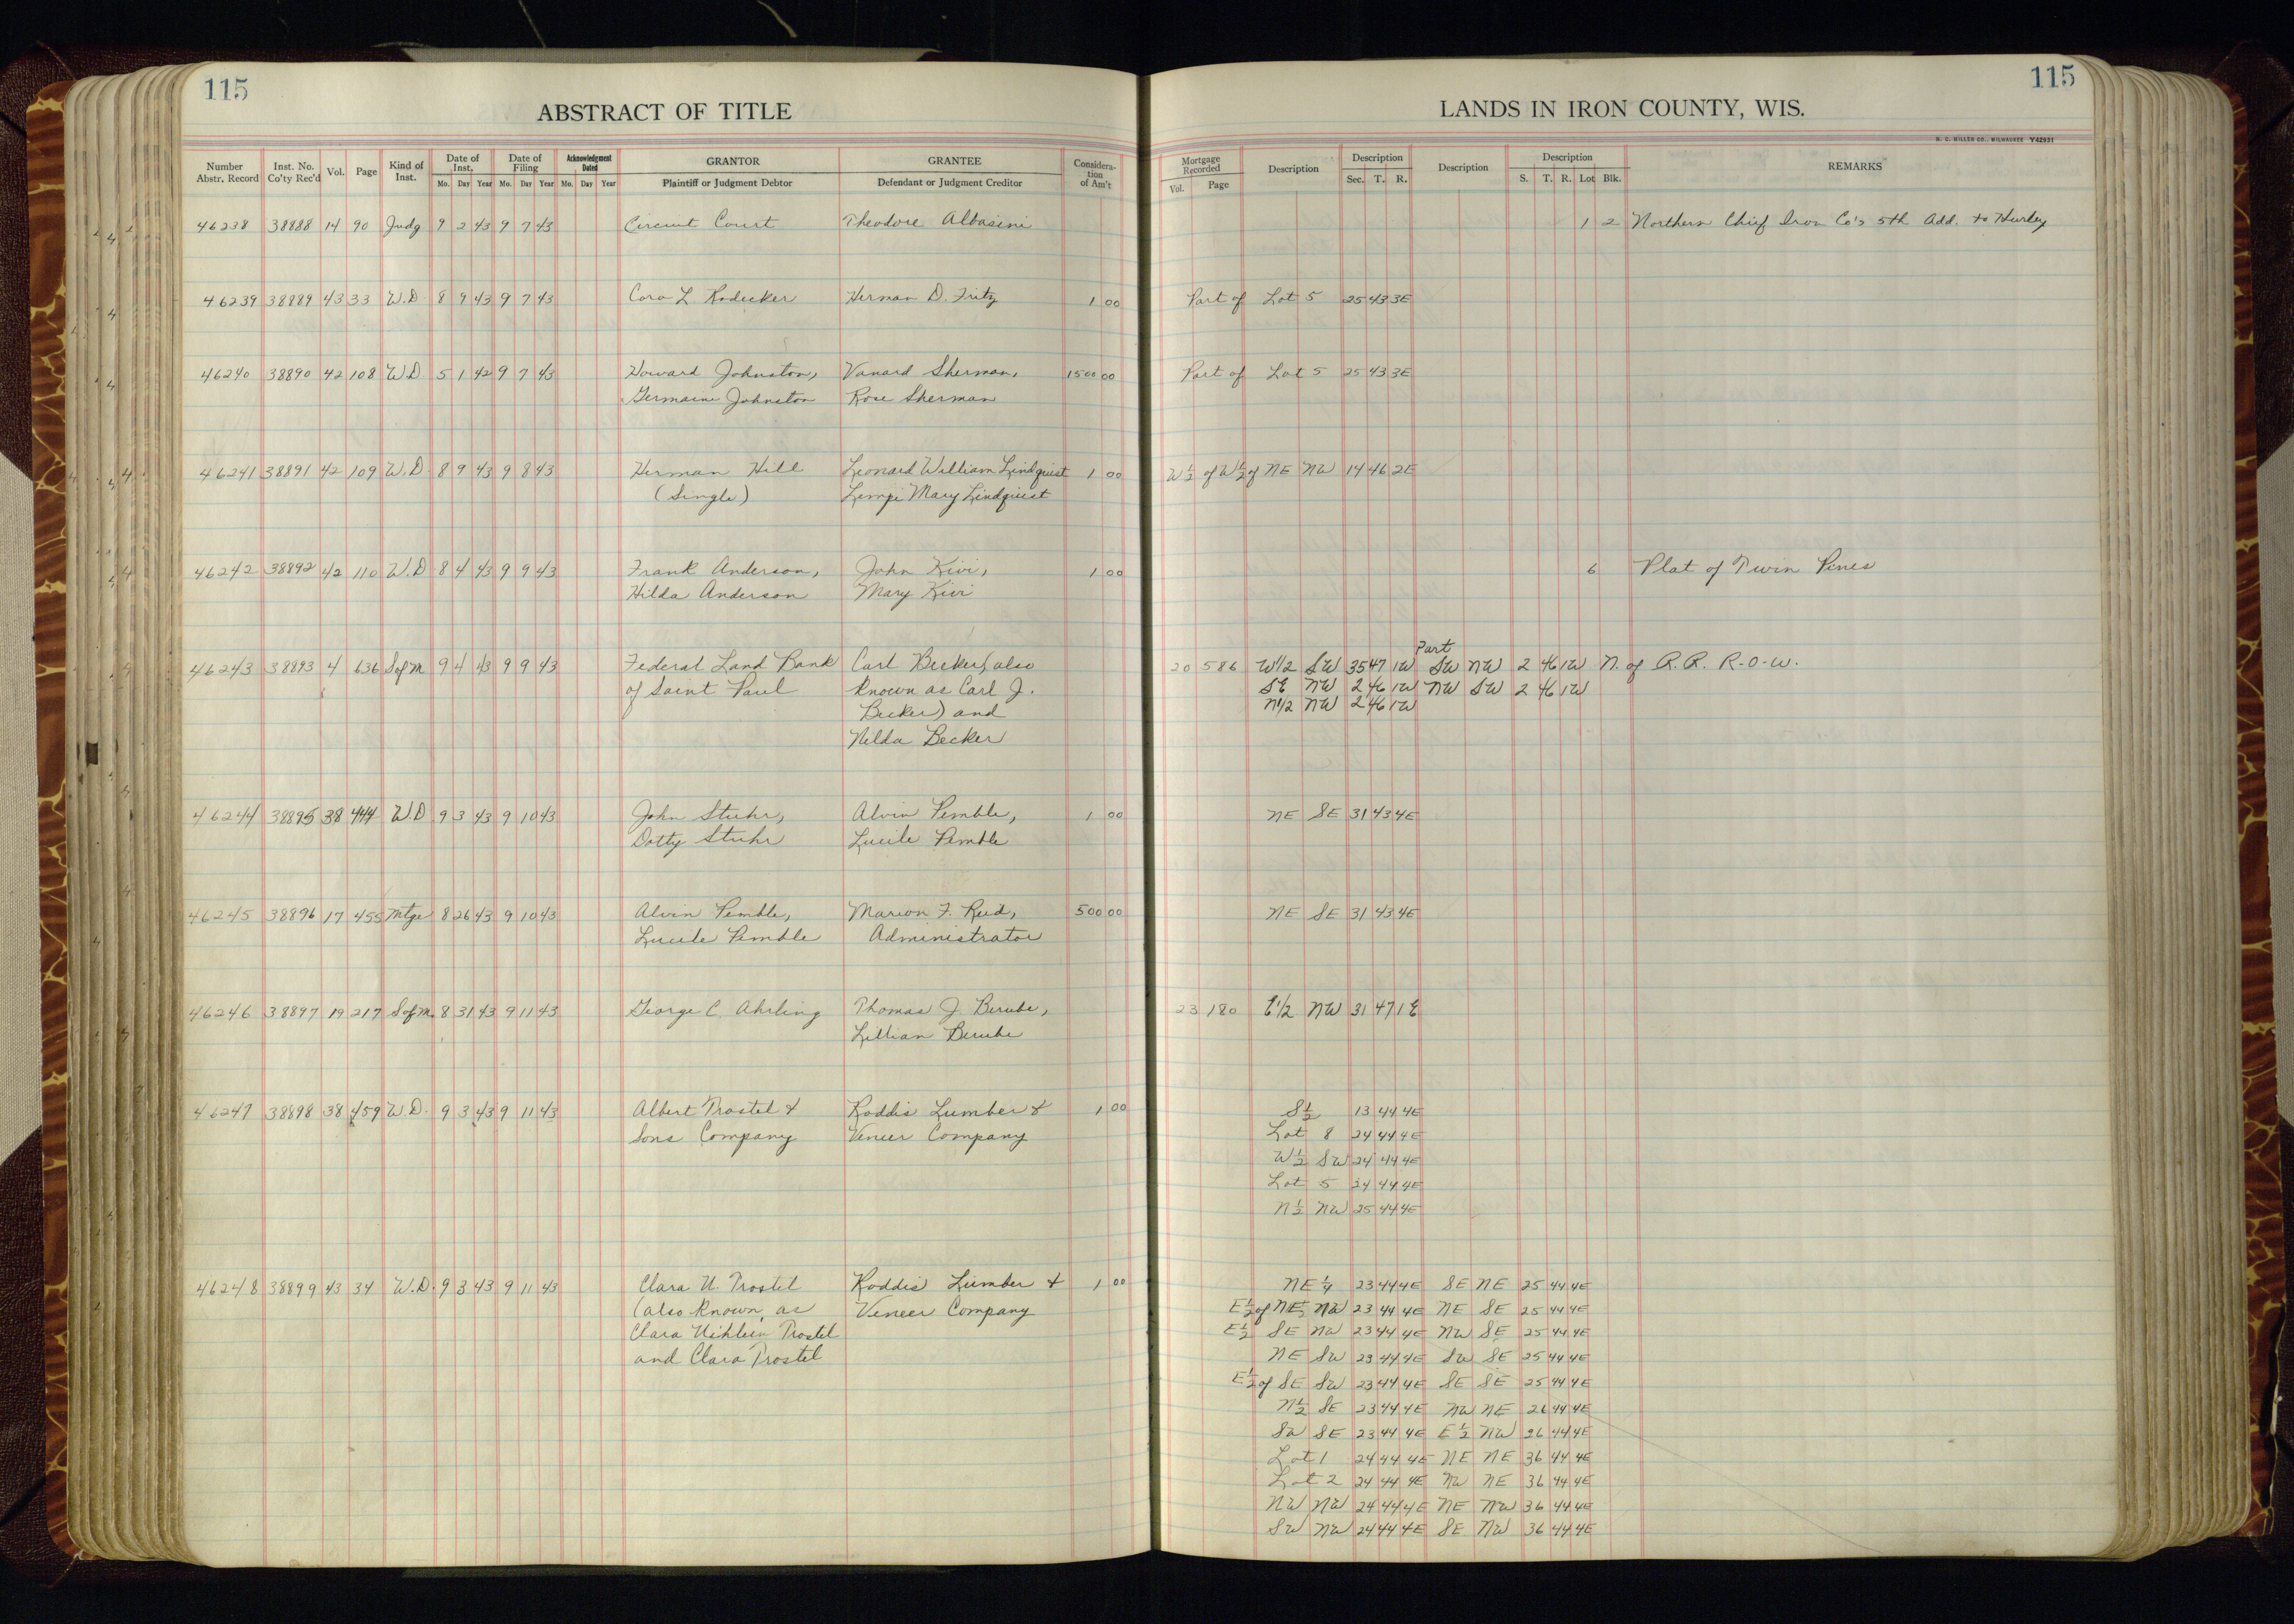 115
115
ABSTRACT OF TITLE
LANDS IN IRON COUNTY, WIS.
H. C. MILLER CO., MILWAUKEE Y42931
Number Abstr. Record Inst. No. Co'ty Rec'd Vol. Page Kind of Inst. Date of Inst. Mo. Day Year Date of Filing Mo. Day Year Acknowledgment Dated Mo. Day Year GRANTOR Plaintiff or Judgment Debtor GRANTEE Defendant or Judgment Creditor Considera-tion of Am't Mortgage Recorded Vol. Page Description Description Sec. T. R. Description Description S. T. R. Lot Blk. REMARKS
46238 38888 14 90 Judg 9 2 43 9 7 43 Circuit Court Theodore Albasini 1 2 Northern Chief Iron Co's 5th Add. to Hurley
46239 38889 43 33 W.D 8 9 43 9 7 43 Cora L. Rodecker Herman D. Fritz 1 00 Part of Lot 5 25 43 3E
46240 38890 42 108 W.D 5 1 42 9 7 43 Howard Johnston, Vanard Sherman, 1500 00 Part of Lot 5 25 43 3E
Germaine Johnston Rose Sherman
46241 38891 42 109 W.D 8 9 43 9 8 43 Herman Hill Leonard William Lindquist 1 00 W½ of W½ of NE NW 14 46 2E
(Single) Lempi Mary Lindquist
46242 38892 42 110 W.D 8 4 43 9 9 43 Frank Anderson, John Kivi, 1 00 6 Plat of Twin Pines
Hilda Anderson Mary Kivi
Part
46243 38893 4 636 S of M 9 4 43 9 9 43 Federal Land Bank Carl Becker (also 20 586 W1/2 SW 35 47 1W SW NW 2 46 1W N. of R.R. R-O-W.
of Saint Paul known as Carl J. SE NW 2 46 1W NW SW 2 46 1W
Becker) and N1/2 NW 2 46 1W
Becker
46244 38895 38 444 W.D 9 3 43 9 10 43 John Stuhr, Alvin Pemble, 1 00 NE SE 31 43 4E
Dotty Stuhr Lucile Pemble
46245 38896 17 455 Mtge 8 26 43 9 10 43 Alvin Pemble, Marion F. Reid, 500 00 NE SE 31 43 4E
Lucile Pemble Administrator
46246 38897 19 217 S of M 8 31 43 9 11 43 George C. Ahrling Thomas J Berube, 23 180 E1/2 NW 31 47 1E
Lillian Berube
46247 38898 38 459 W.D. 9 3 43 9 11 43 Albert Trostel & Roddis Lumber & 1 00 S½ 13 44 4E
Sons Company Veneer Company Lot 8 24 44 4E
W½ SW 24 44 4E
Lot 5 24 44 4E
N½ NW 25 44 4E
46248 38899 43 34 W.D. 9 3 43 9 11 43 Clara U. Trostel Roddis Lumber & 1 00 NE¼ 23 44 4E SE NE 25 44 4E
(also known as Veneer Company E½ of NE NW 23 44 4E NE SE 25 44 4E
Clara Uihlein Trostel E½ SE NW 23 44 4E NW SE 25 44 4E
and Clara Trostel NE SW 23 44 4E SW SE 25 44 4E
E½ of SE SW 23 44 4E SE SE 25 44 4E
N½ SE 23 44 4E NW NE 26 44 4E
SW SE 23 44 4E E½ NW 26 44 4E
Lot 1 24 44 4E NE NE 36 44 4E
Lot 2 24 44 4E NW NE 36 44 4E
NW NW 24 44 4E NE NW 36 44 4E
SW NW 24 44 4E SE NW 36 44 4E